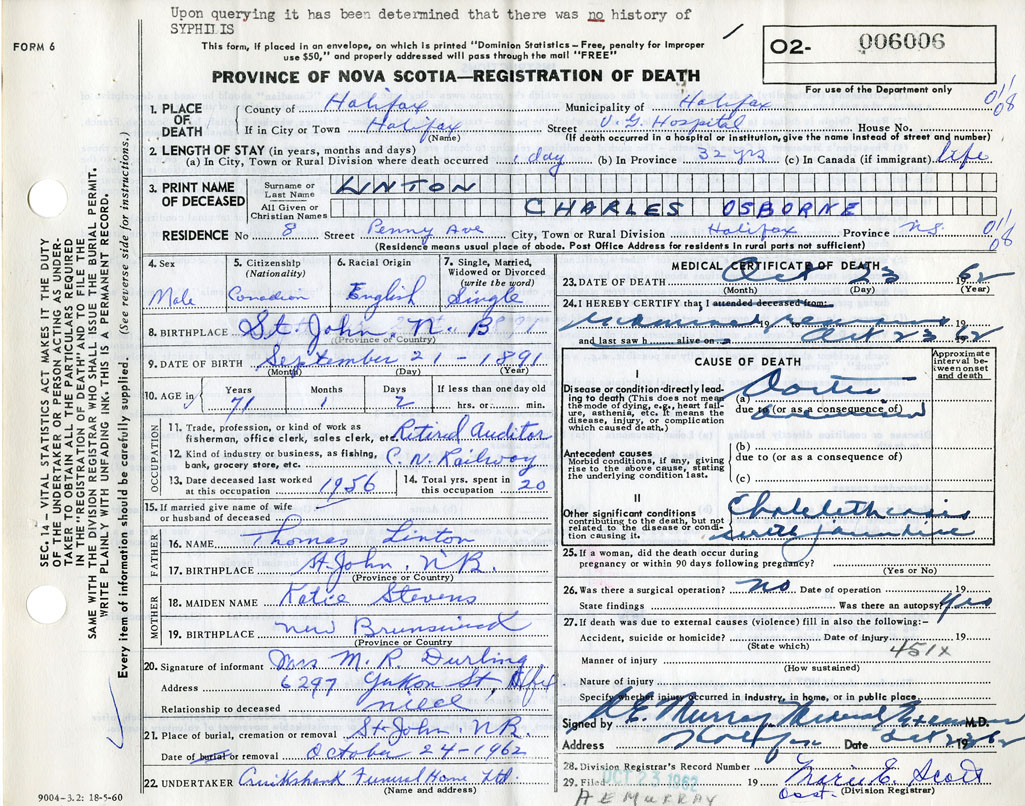 Upon querying it has been determined that there was no history of
SYPHILIS
FORM 6
This form, if placed in an envelope, on which is printed "Dominion Statistics – Free, penalty for improper
use $50," and properly addressed will pass through the mail "FREE"
O2- 006006
PROVINCE OF NOVA SCOTIA—REGISTRATION OF DEATH
For use of the Department only
1. PLACE OF DEATH
County of Halifax Municipality of Halifax
If in City or Town Halifax Street V. G. Hospital House No.
(Name) (If death occurred in a hospital or institution, give the name instead of street and number)
2. LENGTH OF STAY (in years, months and days)
(a) In City, Town or Rural Division where death occurred 1 day (b) In Province 32 yrs (c) In Canada (if immigrant) life
3. PRINT NAME OF DECEASED
Surname or Last Name LINTON
All Given or Christian Names CHARLES OSBORNE
RESIDENCE No 8 Street Penny Ave City, Town or Rural Division Halifax Province N.S.
(Residence means usual place of abode. Post Office Address for residents in rural parts not sufficient)
01/08
01/08
4. Sex Male
5. Citizenship (Nationality) Canadian
6. Racial Origin English
7. Single, Married, Widowed or Divorced (write the word) Single
8. BIRTHPLACE St. John, N. B
(Province or Country)
9. DATE OF BIRTH September 21 - 1891
(Month) (Day) (Year)
10. AGE in Years 71 Months 1 Days 2 If less than one day old
hrs. or min.
OCCUPATION
11. Trade, profession, or kind of work as fisherman, office clerk, sales clerk, etc. Retired Auditor
12. Kind of industry or business, as fishing, bank, grocery store, etc. C. N. Railway
13. Date deceased last worked at this occupation 1956
14. Total yrs. spent in this occupation 20
15. If married give name of wife or husband of deceased
FATHER
16. NAME Thomas Linton
17. BIRTHPLACE St. John, N.B.
(Province or Country)
MOTHER
18. MAIDEN NAME Katie Stevens
19. BIRTHPLACE New Brunswick
(Province or Country)
20. Signature of informant Mrs M. R. Durling
Address 6297 Yukon St, Hfx
Relationship to deceased niece
21. Place of burial, cremation or removal St. John, N.B.
Date of burial or removal October 24 - 1962
22. UNDERTAKER Cruikshank Funeral Home Ltd.
(Name and address)
MEDICAL CERTIFICATE OF DEATH
23. DATE OF DEATH Oct 23 1962
(Month) (Day) (Year)
24. I HEREBY CERTIFY that I attended deceased from:
Examined remains 19 to Oct 23 62
and last saw h alive on
CAUSE OF DEATH
Approximate interval between onset and death
I
Disease or condition directly leading to death (This does not mean the mode of dying, e.g., heart failure, asthenia, etc. It means the disease, injury, or complication which caused death.)
(a) Aortic
due to (or as a consequence of)
Antecedent causes
Morbid conditions, if any, giving rise to the above cause, stating the underlying condition last.
(b)
due to (or as a consequence of)
(c)
II
Other significant conditions contributing to the death, but not related to the disease condition causing it.
with jaundice
25. If a woman, did the death occur during pregnancy or within 90 days following pregnancy?
(Yes or No)
26. Was there a surgical operation? no Date of operation 19
State findings Was there an autopsy? Yes
27. If death was due to external causes (violence) fill in also the following:–
Accident, suicide or homicide? Date of injury 19
(State which)
451X
Manner of injury
(How sustained)
Nature of injury
Specify whether injury occurred in industry, in home, or in public place
Signed by A E. Murray Medical Examiner M.D.
Address Halifax Date Oct 23 1962
28. Division Registrar's Record Number
29. Filed OCT 23 1962 19 Marie E. Scott
Asst. (Division Registrar)
A E MURRAY
SEC. 14 – VITAL STATISTICS ACT, MAKES IT THE DUTY
OF THE UNDERTAKER OR PERSON ACTING AS UNDER-
TAKER TO OBTAIN ALL THE PARTICULARS REQUIRED
IN THE "REGISTRATION OF DEATH" AND TO FILE THE
SAME WITH THE DIVISION REGISTRAR WHO SHALL ISSUE THE BURIAL PERMIT.
WRITE PLAINLY WITH UNFADING INK. THIS IS A PERMANENT RECORD.
Every item of information should be carefully supplied. (See reverse side for instructions.)
9004-3.2: 18-5-60